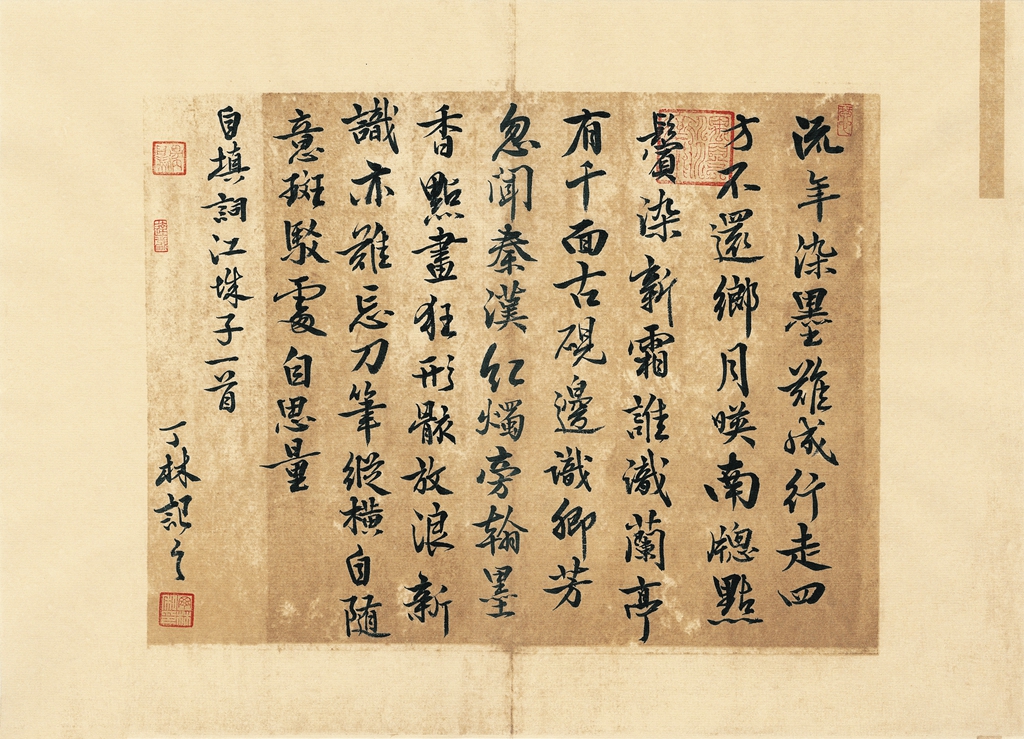 沅年染墨難成行走四
方不還鄉月暎南牕點
鬢染新霜誰識蘭亭
有千面古硯邊識卿芳
忽聞秦漢紅燭旁翰墨
香點畫狂形骸放浪新
識亦難忘刀筆縱橫自隨
意斑駁處自思量
自填詞江城子一首
丁林記之